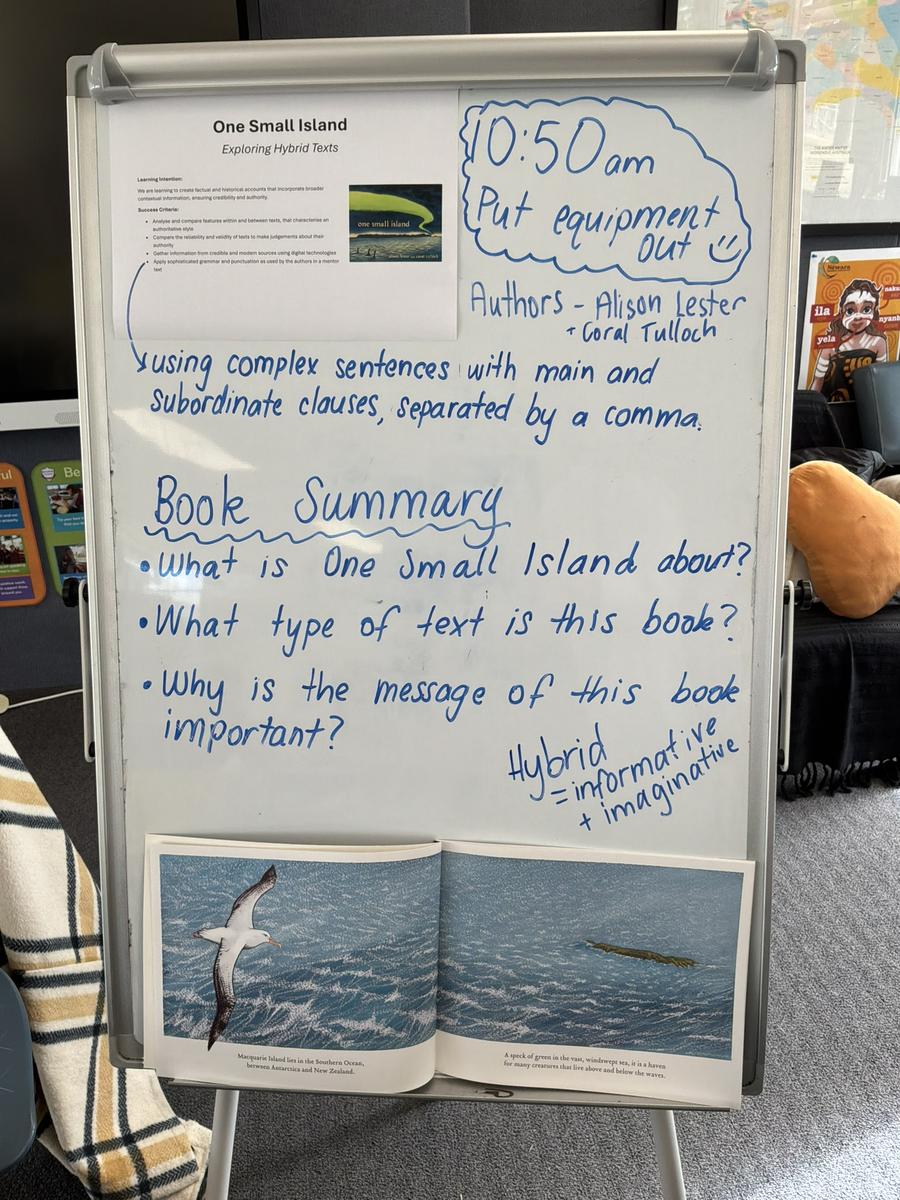 One Small Island
Exploring Hybrid Texts
Learning Intention:
We are learning to create factual and historical accounts that incorporate broader
contextual information, ensuring credibility and authority.
Success Criteria:
• Analyse and compare features within and between texts, that characterise an
authoritative style
• Compare the reliability and validity of texts to make judgements about their
authority
• Gather information from credible and modern sources using digital technologies
• Apply sophisticated grammar and punctuation as used by the authors in a mentor
text
one small island
10:50am
Put equipment
out
Authors - Alison Lester
+ Coral Tulloch
using complex sentences with main and
subordinate clauses, separated by a comma.
Book Summary
• What is One Small Island about?
• What type of text is this book?
• Why is the message of this book
important?
Hybrid
= informative
+ imaginative
Macquarie Island lies in the Southern Ocean,
between Antarctica and New Zealand.
A speck of green in the vast, windswept sea, it is a haven
for many creatures that live above and below the waves.
ila
yela
Be